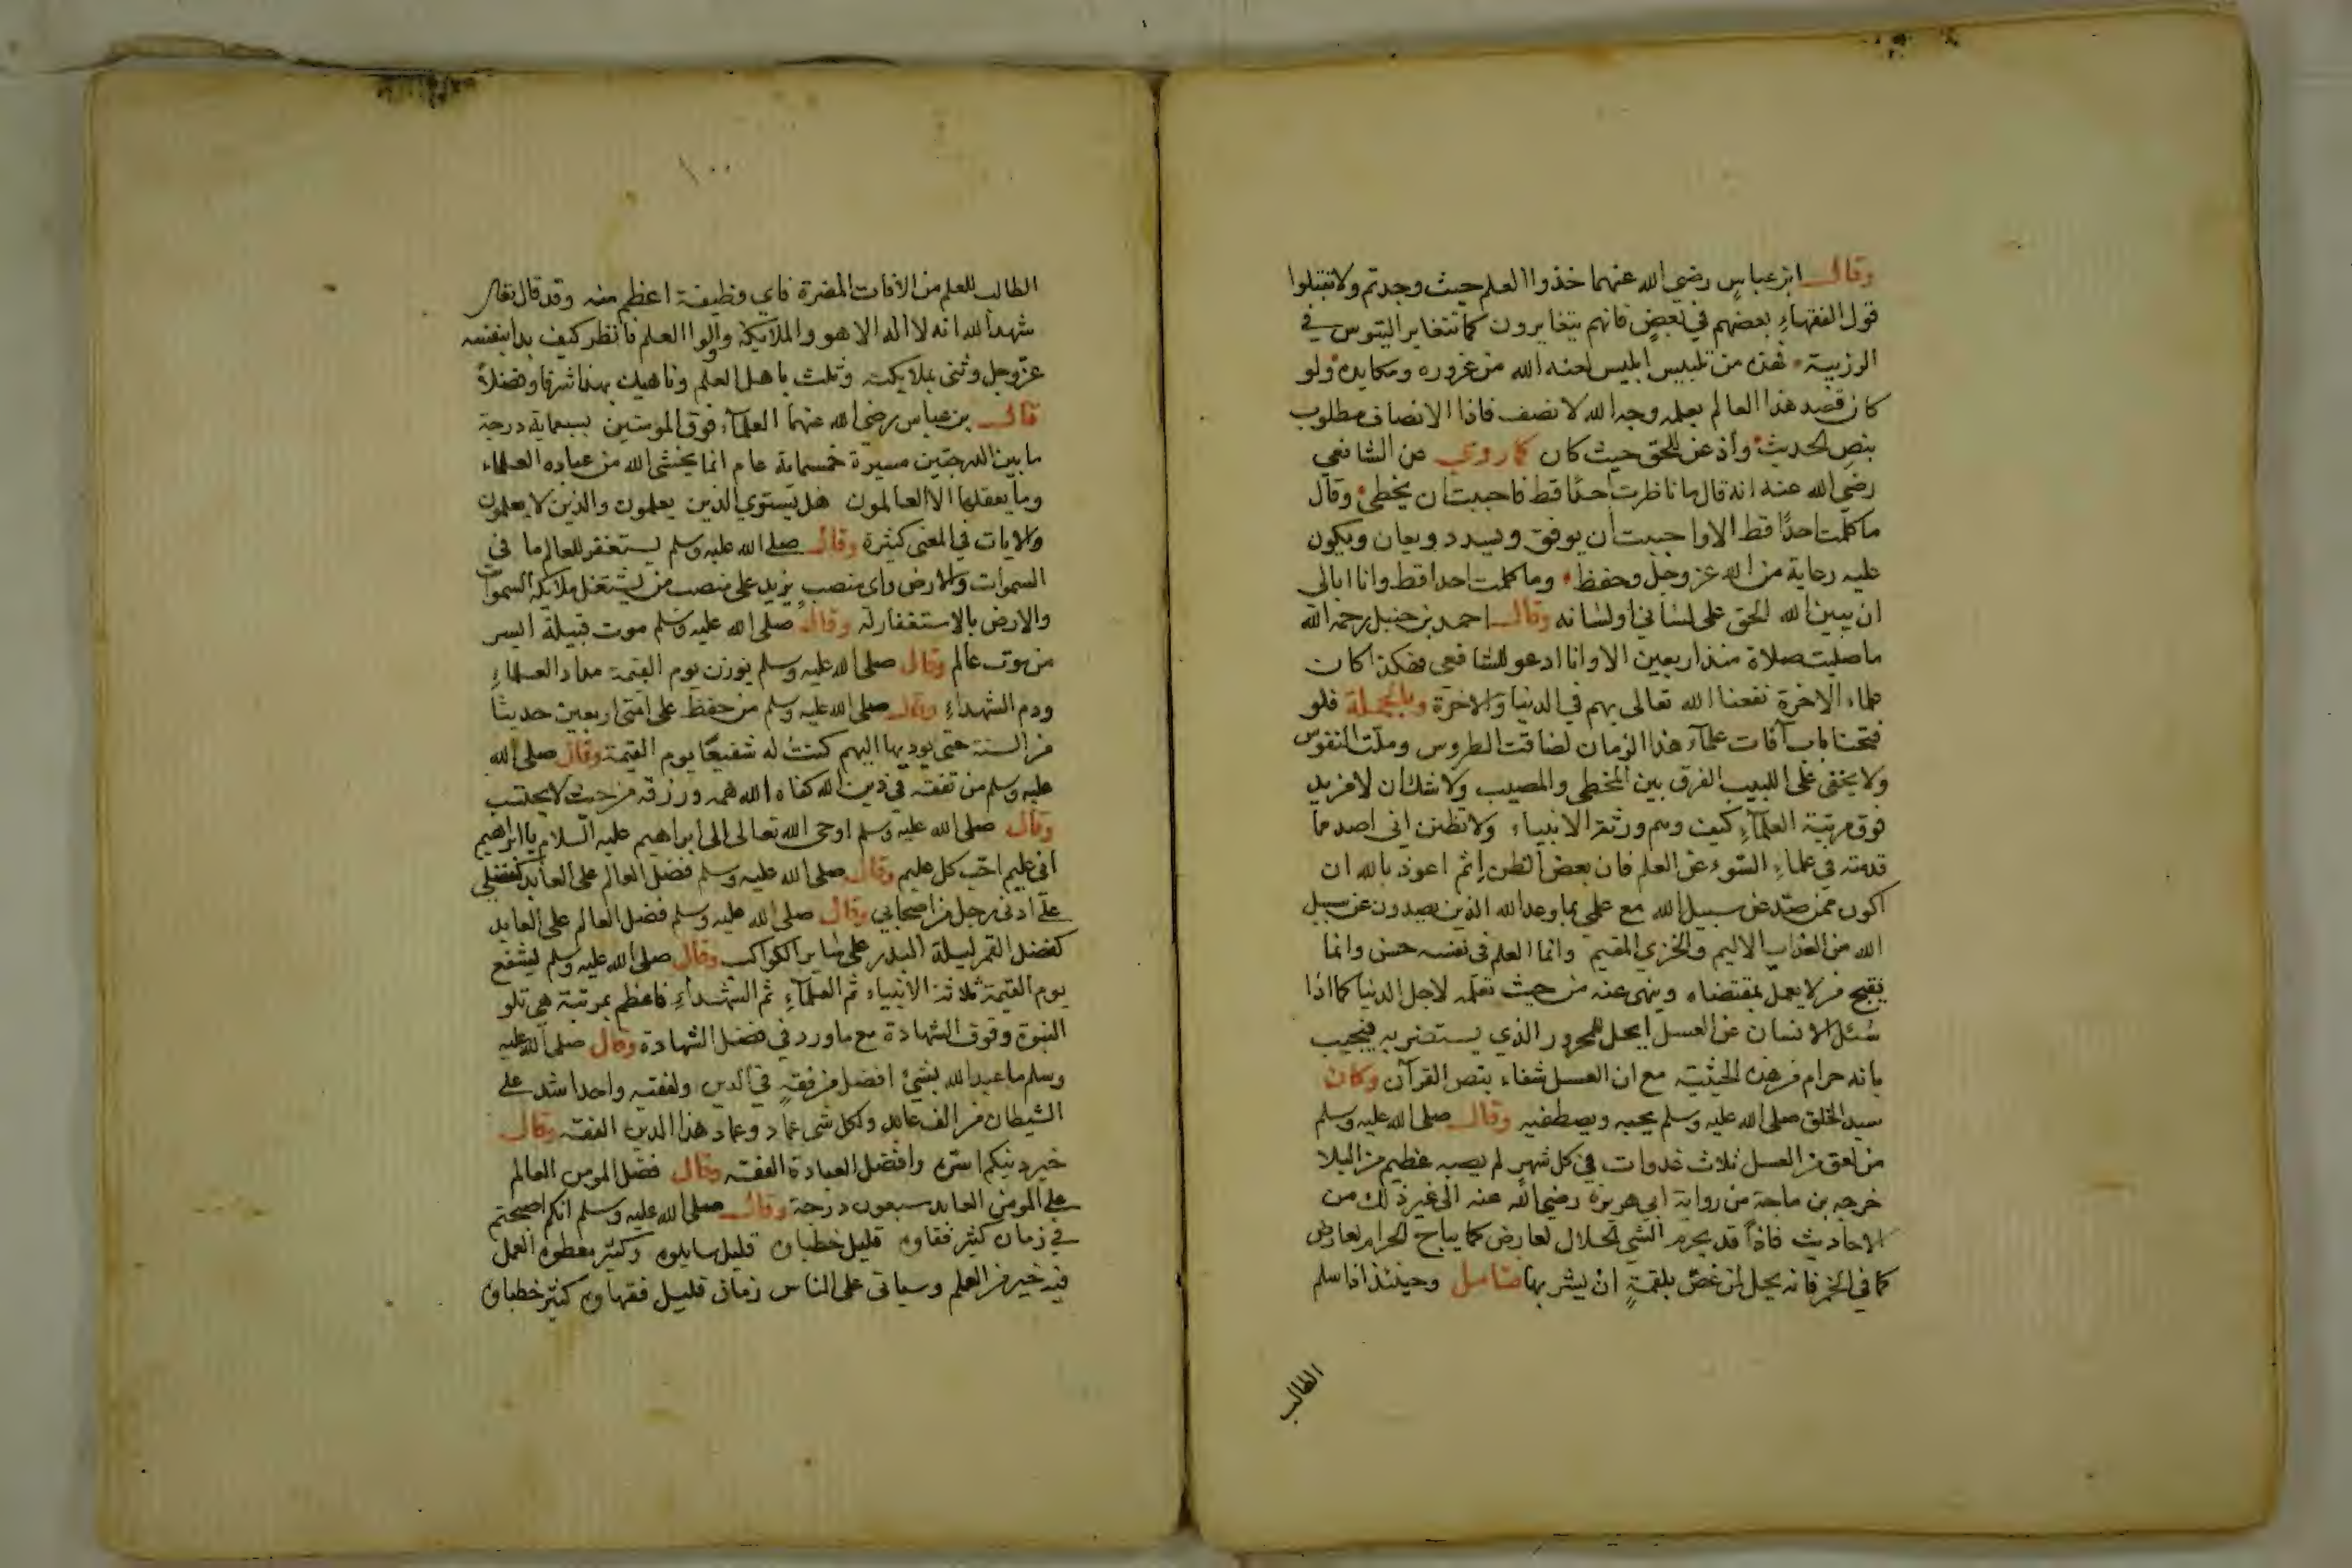 وقال ابن عباس رضي الله عنهما خذوا العلم حيث وجدتم ولا تقبلوا
قول الفقهاء بعضهم في بعض فانهم يتغايرون كما تتغاير التيوس في
الزريبة فهذه من تلبيس ابليس لعنه الله من غروره ومكايده ولو
كان قصد هذا العالم بعلمه وجه الله لانصف فاذا الانصاف مطلوب
بنص الحديث واذعن للحق حيث كان كما روي عن الشافعي
رضي الله عنه انه قال ما ناظرت احدًا قط فاحببت ان يخطئ وقال
ما كلمت احدًا قط الا واحببت ان يوفق ويسدد ويعان ويكون
عليه رعاية من الله عز وجل وحفظ وما كلمت احدا قط وانا ابالي
ان يبين الله الحق على لساني او لسانه وقال احمد بن حنبل رحمه الله
ما صليت صلاة منذ اربعين الا وانا ادعو للشافعي فهكذا كان
علماء الاخرة نفعنا الله تعالى بهم في الدنيا والاخرة وبالجملة فلو
فتحنا باب آفات علماء هذا الزمان لضاقت الطروس وملت النفوس
ولا يخفى على اللبيب الفرق بين المخطي والمصيب ولا شك ان لا مزيد
فوق مرتبة العلماء كيف وهم ورثة الانبياء ولا تظنن اني اصد مما
قدمته في علماء السوء عن العلم فان بعض الظن اثم اعوذ بالله ان
اكون ممن صد عن سبيل الله مع علمي بما وعد الله الذين يصدون عن سبيل
الله من العذاب الاليم والخزي المقيم وانما العلم في نفسه حسن وانما
يقبح من لا يعمل بمقتضاه وينهى عنه من حيث تعلمه لاجل الدنيا كما اذا
سئل الانسان عن العسل ايحل للمحرور الذي يستضر به فيجيب
بانه حرام من هذه الحيثية مع ان العسل شفاء بنص القرآن وكان
سيد الخلق صلى الله عليه وسلم يحبه ويصطفيه وقال صلى الله عليه وسلم
من لعق من العسل ثلاث غدوات في كل شهر لم يصبه عظيم من البلا
خرجه بن ماجة من رواية ابي هريرة رضي الله عنه الى غير ذلك من
الاحاديث فاذًا قد يحرم الشي الحلال لعارض كما يباح الحرام لعارض
كما في الخمر فانه يحل لمن غص بلقمةٍ ان يشربها فتامل وحينئذ اذا سلم
الطالب
١٠٠
الطالب للعلم من الافات المضرة فاي وظيفة اعظم منه وقد قال تعالى
شهد الله انه لا اله الا هو والملائكة واولوا العلم فانظر كيف بدا بنفسه
عز وجل وثنى بملائكته وثلث باهل العلم وناهيك بهذا شرفا وفضلاً
قال بن عباس رضي الله عنهما العلماء فوق المومنين بسبعماية درجة
ما بين الدرجتين مسيرة خمسماية عام انما يخشى الله من عباده العلماء
وما يعقلها الا العالمون هل يستوي الذين يعلمون والذين لا يعلمون
والايات في المعنى كثيرة وقال صلى الله عليه وسلم يستغفر للعالم ما في
السموات والارض واي منصب يزيد على منصب من يشتغل ملائكة السموات
والارض بالاستغفار له وقال صلى الله عليه وسلم موت قبيلة ايسر
من موت عالم وقال صلى الله عليه وسلم يوزن يوم القيمة مداد العلماء
ودم الشهداء وقال صلى الله عليه وسلم من حفظ على امتي اربعين حديثا
من السنة حتى يوديها اليهم كنت له شفيعًا يوم القيمة وقال صلى الله
عليه وسلم من تفقه في دين الله كفاه الله همه ورزقه من حيث لا يحتسب
وقال صلى الله عليه وسلم اوحى الله تعالى الى ابراهيم عليه السلام يا ابراهيم
اني عليم احب كل عليم وقال صلى الله عليه وسلم فضل العالم على العابد كفضلي
على ادنى رجل من اصحابي وقال صلى الله عليه وسلم فضل العالم على العابد
كفضل القمر ليلة البدر على ساير الكواكب وقال صلى الله عليه وسلم يشفع
يوم القيمة ثلاثة الانبياء ثم العلماء ثم الشهداء فاعظم بمرتبة هي تلو
النبوة وفوق الشهادة مع ما ورد في فضل الشهادة وقال صلى الله عليه
وسلم ما عبد الله بشئ افضل من فقهٍ في الدين ولفقيه واحد اشد على
الشيطان من الف عابد ولكل شي عماد وعماد هذا الدين الفقه وقال
خير دينكم ايسره وافضل العبادة الفقه وقال فضل المومن العالم
على المومن العابد سبعون درجة وقال صلى الله عليه وسلم انكم اصبحتم
في زمان كثير فقاوه قليل خطباوه قليل سايلوه وكثير معطوه العمل
فيه خير من العلم وسياتي على الناس زمان قليل فقهاوه كثير خطباوه